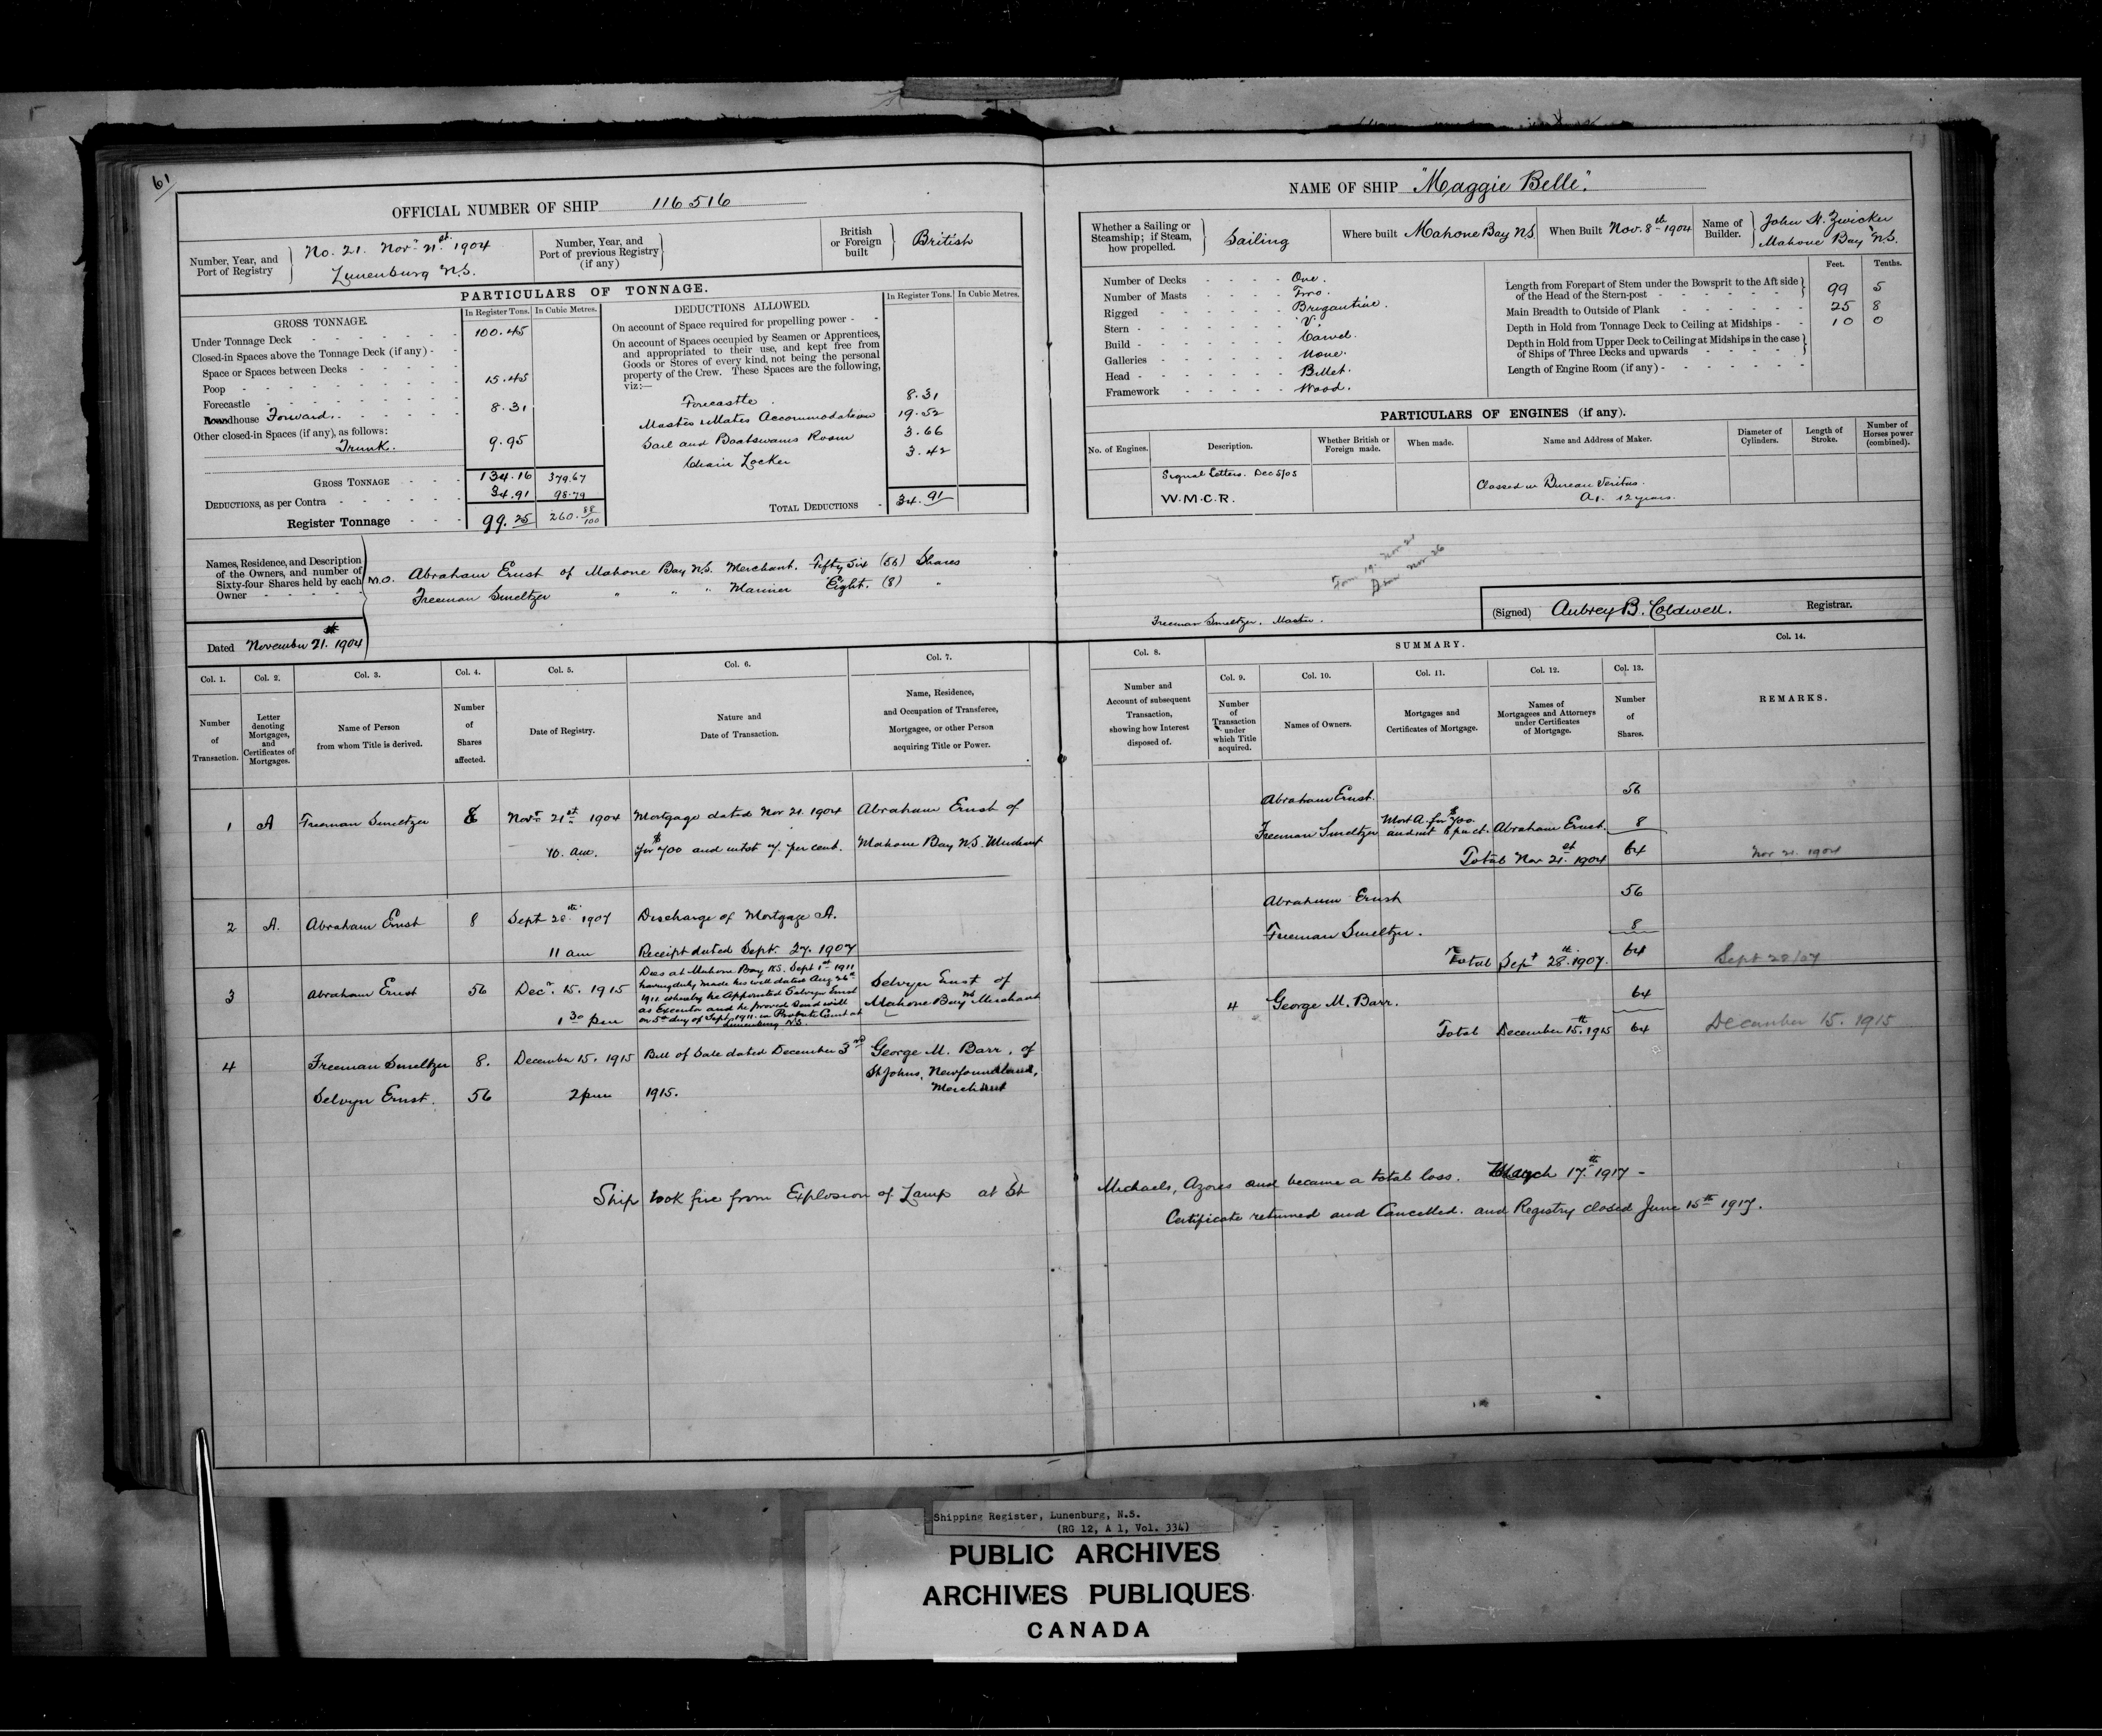 61
OFFICIAL NUMBER OF SHIP 116516
Number, Year, and Port of Registry
No. 21. Nov.r 21.st 1904
Lunenburg N.S.
Number, Year, and Port of previous Registry (if any)
British or Foreign built
British
PARTICULARS OF TONNAGE.
GROSS TONNAGE.
In Register Tons. In Cubic Metres.
Under Tonnage Deck 100.45
Closed-in Spaces above the Tonnage Deck (if any)
Space or Spaces between Decks
Poop 15.45
Forecastle
Roundhouse Forward. 8.31
Other closed-in Spaces (if any), as follows:
Trunk. 9.95
GROSS TONNAGE 134.16 379.67
DEDUCTIONS, as per Contra 34.91 98.79
Register Tonnage 99.25 260.88/100
DEDUCTIONS ALLOWED.
In Register Tons. In Cubic Metres.
On account of Space required for propelling power
On account of Spaces occupied by Seamen or Apprentices,
and appropriated to their use, and kept free from
Goods or Stores of every kind, not being the personal
property of the Crew. These Spaces are the following,
viz:—
Forecastle 8.31
Masters & Mates Accommodation 19.52
Sail and Boatswains Room 3.66
Chain Locker 3.42
TOTAL DEDUCTIONS 34.91
Names, Residence, and Description
of the Owners, and number of
Sixty-four Shares held by each
Owner
M.O. Abraham Ernst of Mahone Bay N.S. Merchant. Fifty Six (56) Shares
Freeman Smeltzer " " " Mariner Eight. (8) "
Dated November 21.st 1904
Col. 1. Col. 2. Col. 3. Col. 4. Col. 5. Col. 6. Col. 7.
Number of Transaction.
Letter denoting Mortgages, and Certificates of Mortgages.
Name of Person from whom Title is derived.
Number of Shares affected.
Date of Registry.
Nature and Date of Transaction.
Name, Residence, and Occupation of Transferee, Mortgagee, or other Person acquiring Title or Power.
1 A Freeman Smeltzer 8 Novr 21st 1904 Mortgage dated Nov 21. 1904 Abraham Ernst of
10. am. for $700 and intst per cent. Mahone Bay N.S. Merchant
2 A. Abraham Ernst 8 Sept 28th 1907 Discharge of Mortgage A.
11 am Receipt dated Sept. 27. 1907
3 Abraham Ernst 56 Decr. 15. 1915
1 30 pm
Dies at Mahone Bay N.S. Sept 1st 1911
having duly made his will dated Aug 26th
1911 whereby he Appointed Selvyn Ernst
as Executor and he proved said will
on 5th day of Sept 1911. in Probate Court at
Lunenburg N.S.
Selvyn Ernst of
Mahone Bay NS Merchant
4 Freeman Smeltzer 8. December 15. 1915 Bill of Sale dated December 3rd George M. Barr, of
St Johns, Newfoundland,
Merchant
Selvyn Ernst. 56 2 pm 1915.
NAME OF SHIP "Maggie Belle".
Whether a Sailing or Steamship; if Steam, how propelled.
Sailing
Where built Mahone Bay N.S.
When Built Nov. 8th 1904
Name of Builder.
John H. Zwicker
Mahone Bay N.S.
Number of Decks One.
Number of Masts Two.
Rigged Brigantine.
Stern "V"
Build Carvel.
Galleries None.
Head Billet.
Framework Wood.
Feet. Tenths.
Length from Forepart of Stem under the Bowsprit to the Aft side of the Head of the Stern-post 99 5
Main Breadth to Outside of Plank 25 8
Depth in Hold from Tonnage Deck to Ceiling at Midships 10 0
Depth in Hold from Upper Deck to Ceiling at Midships in the case of Ships of Three Decks and upwards
Length of Engine Room (if any)
PARTICULARS OF ENGINES (if any).
No. of Engines. Description. Whether British or Foreign made. When made. Name and Address of Maker. Diameter of Cylinders. Length of Stroke. Number of Horses power (combined).
Signal Letters. Dec 5/05
W.M.C.R.
Classed in Bureau Veritas.
A1. 12 years.
Form 19. Nov 21
Nov 26
Freeman Smeltzer. Master.
(Signed) Aubrey B. Coldwell. Registrar.
SUMMARY.
Col. 8. Col. 9. Col. 10. Col. 11. Col. 12. Col. 13. Col. 14.
Number and Account of subsequent Transaction, showing how Interest disposed of.
Number of Transaction under which Title acquired.
Names of Owners.
Mortgages and Certificates of Mortgage.
Names of Mortgagees and Attorneys under Certificates of Mortgage.
Number of Shares.
REMARKS.
Abraham Ernst. 56
Freeman Smeltzer Mort A. for $700. and int 6 pr ct. Abraham Ernst. 8
Total Nov 21.st 1904 64 Nov 21. 1904
Abraham Ernst 56
Freeman Smeltzer. 8
Total Sept 28.th 1907. 64 Sept 28/07
4 George M. Barr. 64
Total December 15.th 1915 64 December 15. 1915
Ship took fire from Explosion of Lamp at St Michaels, Azores and became a total loss. March 17.th 1917 -
Certificate returned and Cancelled. and Registry closed June 15th 1917.
Shipping Register, Lunenburg, N.S.
(RG 12, A 1, Vol. 334)
PUBLIC ARCHIVES
ARCHIVES PUBLIQUES
CANADA